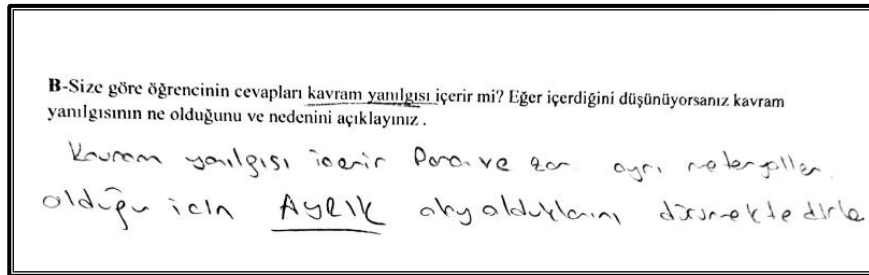 B-Size göre öğrencinin cevapları kavram yanılgısı içerir mi? Eğer içerdiğini düşünüyorsanız kavram
yanılgısının ne olduğunu ve nedenini açıklayınız .
Kavram yanılgısı içerir Para ve zar ayrı materyaller
olduğu için AYRIK olay olduklarını düşünmektedirler